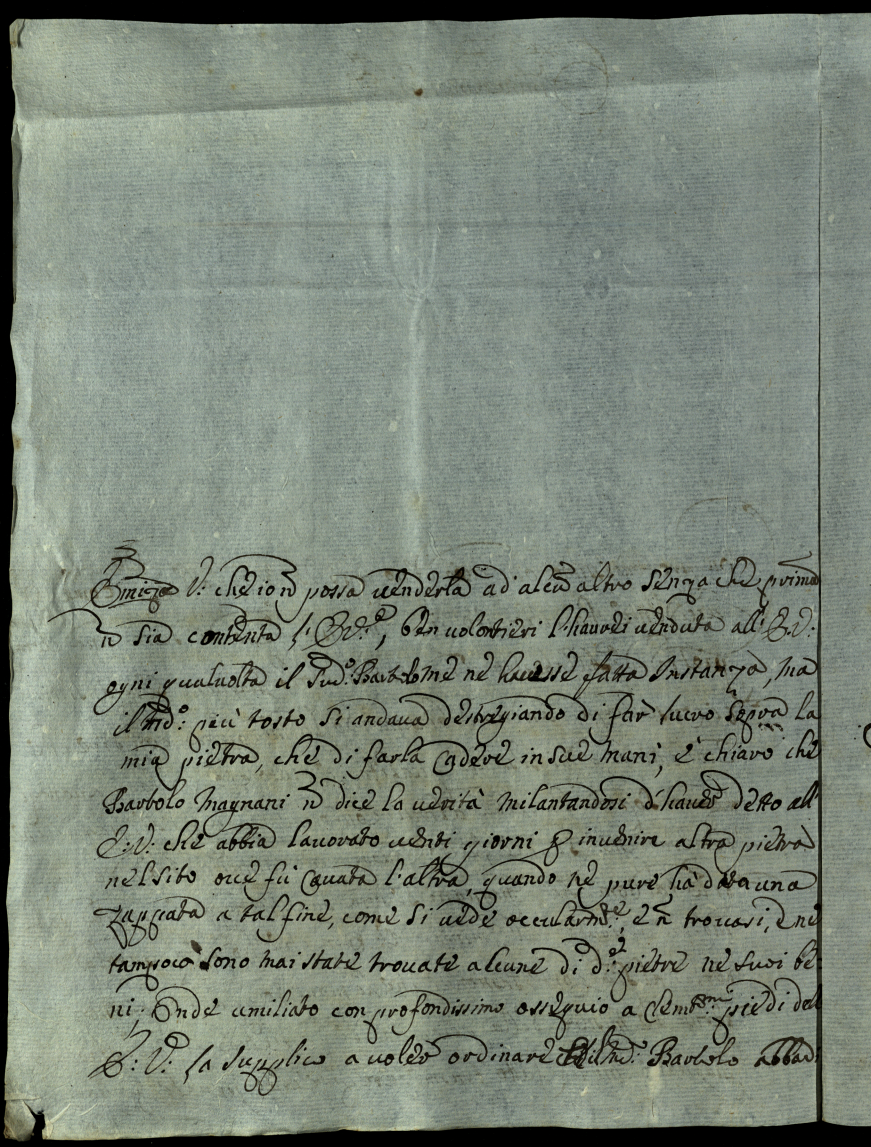 V: che io ñ possa venderla ad' alcũ altro senza che prima
ñ sia contenta l' E.V:, ben volontieri l'haurei venduta all' E.V:
ogni qualvolta il Sud.º Bartolo me ne havesse fatta Instanza, ma
il più tosto si andava di far lucro sopra la
mia pietra, che di farla cadere in sue mani, e' chiaro che
Bartolo Magnani ñ dice la verità milantandosi d'haver detto all'
E:V: che abbia lavorato venti giorni ꝑ invenire altra pietra
nel sito ove fù cavata l'altra, quando ne pure hà data una
zappata a tal fine, come si vede occularm.te, e ñ trovasi, e ne
tampoco sono mai state trovate alcune di d.e pietre ne suoi be
ni; Onde umiliato con profondissimo ossequio a piedi dell
E: V: la supplico a voler ordinare Bartolo abbad